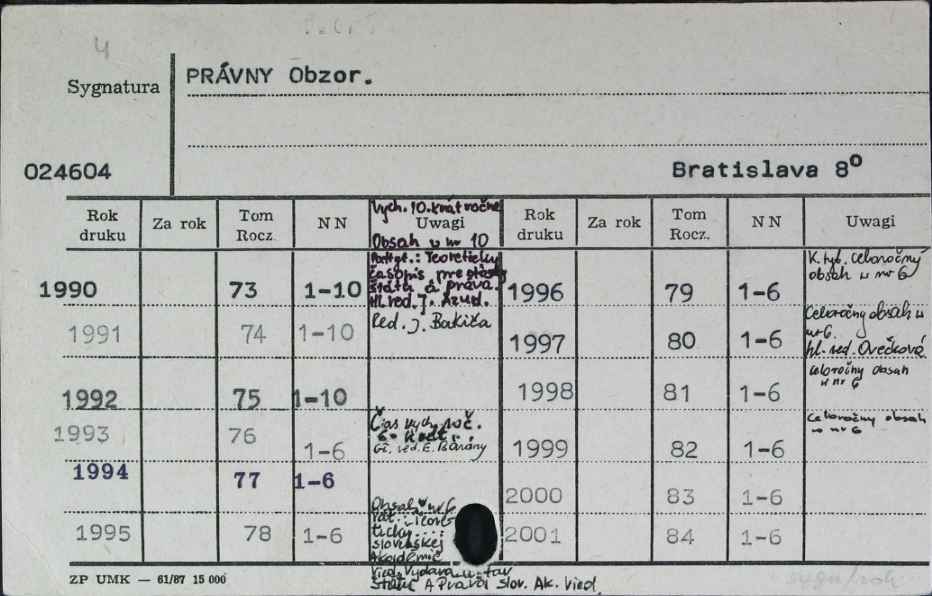 4
PRÁVNY Obzor.
Sygnatura
024604
Bratislava 8⁰
Rok druku Za rok Tom Rocz. N N Uwagi Rok druku Za rok Tom Rocz. N N Uwagi
Vych. 10. krát ročne
Obsah w nr 10
Podtyt.: Teoretický
časopis pre otázky
štátu a práva.
Hl. red. J. Azud.
1990 73 1-10
1991 74 1-10 Red. J. Bakiča
1992 75 1-10
1993 76 1-6 Čas vych. roč.
6-krát.
Gł. red. E. Bárány
1994 77 1-6
1995 78 1-6 Obsah w nr 6
slovenskej
Akadémie
Vied. Vydava
Štátu A Práva Slov. Ak. Vied.
1996 79 1-6 K. tyt. Celoročný
obsah w nr 6
1997 80 1-6 Celoročny obsah w
nr 6.
hl. red. Ovečková
1998 81 1-6 celoročny obsah
w nr 6
1999 82 1-6 Celoročny obsah
w nr 6
2000 83 1-6
2001 84 1-6
ZP UMK — 61/87 15 000